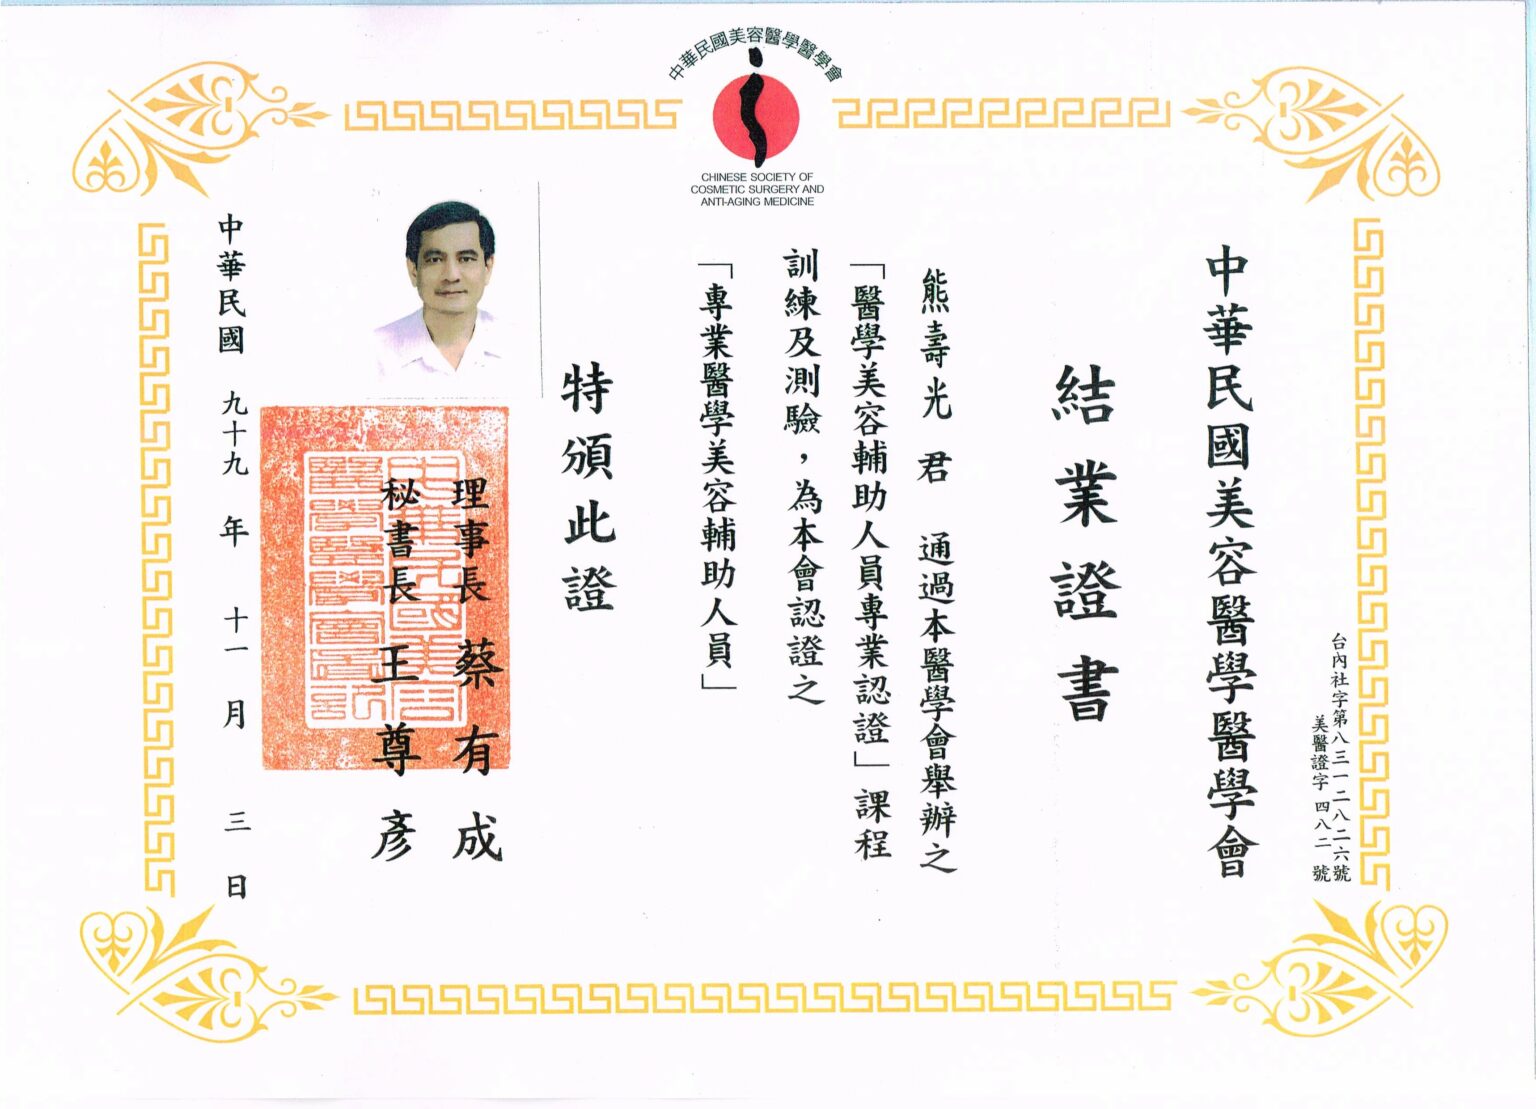 中華民國美容醫學醫學會
CHINESE SOCIETY OF
COSMETIC SURGERY AND
ANTI-AGING MEDICINE
台內社字第八三一二八二六號
美醫證字 四八二 號
中華民國美容醫學醫學會
結業證書
熊壽光 君 通過本醫學會舉辦之
「醫學美容輔助人員專業認證」課程
訓練及測驗，為本會認證之
「專業醫學美容輔助人員」
特頒此證
理事長 蔡有成
秘書長 王尊彥
中華民國 九十九 年 十一 月 三 日